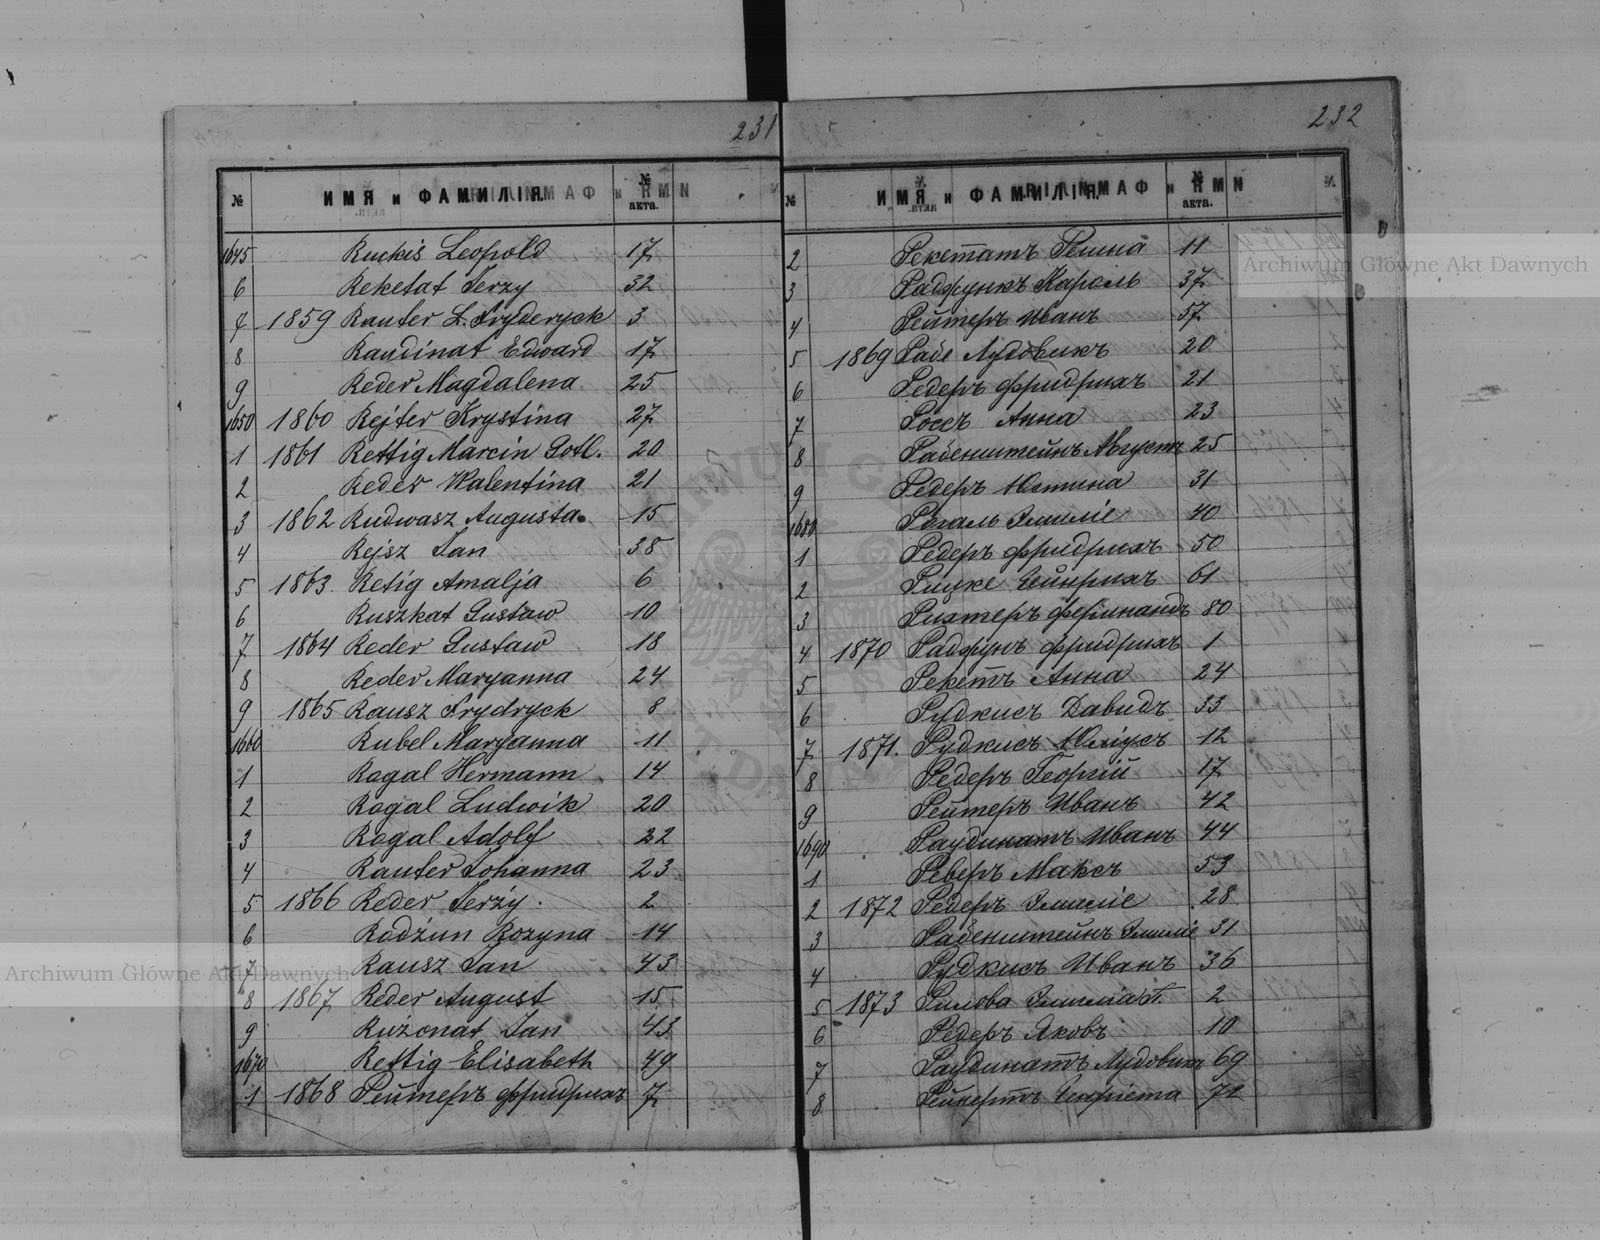 231
№ ИМЯ и ФАМИЛІЯ. № акта.
1645 Ruckis Leopold 17
6 Reketat Jerzy 32
7 1859 Rauter L. Fryderyck 3
8 Raudinat Edward 17
9 Reder Magdalena 25
1650 1860 Rejter Krystina 27
1 1861 Rettig Marcin Gotl. 20
2 Reder Walentina 21
3 1862 Rudwasz Augusta 15
4 Rejsz Jan 38
5 1863. Retig Amalja 6
6 Ruszkat Gustaw 10
7 1864 Reder Gustaw 18
8 Reder Maryanna 24
9 1865 Rausz Frydryck 8
1660 Rubel Maryanna 11
1 Rogal Hermann 14
2 Rogal Ludwik 20
3 Rogal Adolf 22
4 Rauter Johanna 23
5 1866 Reder Jerzy. 2
6 Rodžun Rozyna 14
7 Rausz Jan 43
8 1867 Reder August 15
9 Ružonat Jan 43
1670 Rettig Elisabeth 49
1 1868 Рейтеръ Фридрихъ 7
232
№ ИМЯ и ФАМИЛІЯ. № акта.
2 Рекетатъ 11
3 Радзунъ Кароль 37
4 Рейтеръ Иванъ 57
5 1869 Рабе Лудовикъ 20
6 Редеръ Фридрихъ 21
7 Россъ Анна 23
8 Рабенштейнъ Августъ 25
9 Редеръ Юстина 31
1680 Рогаль Эмиліе 40
1 Редеръ Фридрихъ 50
2 Рицке Гейнрихъ 61
3 Рихтеръ Фердинандъ 80
4 1870 Радзунъ Фридрихъ 1
5 Рекетъ Анна 24
6 Рудкисъ Давидъ 33
7 1871. Рудкисъ Юліусъ 12
8 Редеръ Георгій 17
9 Рейтеръ Иванъ 42
1690 Раудинатъ Иванъ 44
1 Реверъ Максъ 53
2 1872 Редеръ Эмиліе 28
3 Рабенштейнъ Эмиліе 31
4 Рудкисъ Иванъ 36
5 1873 Эмилія 2
6 Редеръ Яковъ 10
7 Раудинатъ Лудовикъ 69
8 Рейнертъ Генріета 72
Archiwum Główne Akt Dawnych
Archiwum Główne Akt Dawnych